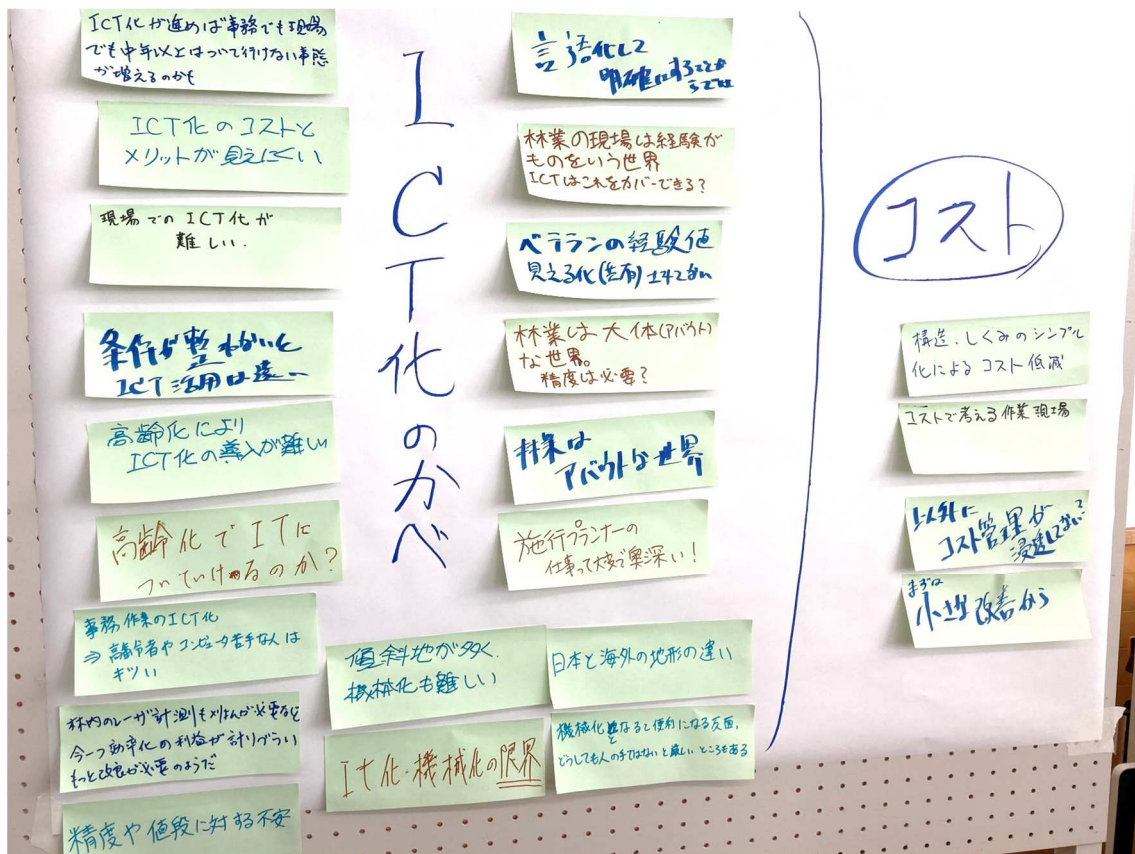 ICT化が進めば事務でも現場
でも中年以上はついて行けない事態
が増えるのかも
ICT化のコストと
メリットが見えにくい
現場でのICT化が
難しい.
条件が整わないと
ICT活用は遠い
高齢化により
ICT化の導入が難しい
高齢化でITに
ついていけるのか?
事務作業のICT化
⇒高齢者やコンピュータ苦手な人は
キツい
林内のレーザ計測も
必要など
今一つ効率化の利益が計りづらい
もっと改良が必要のようだ
精度や値段に対する不安
ICT化のかべ
言語化して
明確にすることが
林業の現場は経験が
ものをいう世界
ICTはこれをカバーできる?
ベテランの経験値
見える化(共有)
林業は大体(アバウト)
な世界。
精度は必要?
林業は
アバウトな世界
施行プランナーの
仕事って大変で奥深い!
傾斜地が多く、
機械化も難しい
日本と海外の地形の違い
IT化・機械化の限界
機械化となると便利になる反面、
どうしても人の手ではないと厳しいところもある
コスト
構造・しくみのシンプル
化によるコスト低減
コストで考える作業現場
コスト管理が
浸透してない?
まずは
小さな改善から